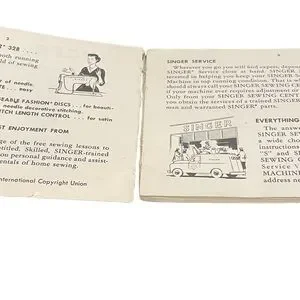 2
328 . . .
running
of sewing
of needle.
needle
. . . easy
EABLE FASHION* DISCS . . . for beauti-
needle decorative stitching.
TCH LENGTH CONTROL . . . for satin
ST ENJOYMENT FROM
age of the free sewing lessons to
titled. Skilled, SINGER-trained
you personal guidance and assist-
entals of home sewing.
International Copyright Union
3
SINGER SERVICE
Wherever you go you will find expert, dependable
SINGER* Service close at hand. SINGER is
interested in helping you keep your SINGER Sewing
Machine in top running condition. That is why
should always call your SINGER SEWING CENTER
if your machine ever requires adjustment or
Only from your SINGER SEWING CENTER
you obtain the services of a trained SINGER
man and warranted SINGER* parts.
SINGER
EVERYTHING
The answer
SINGER SEW
a wide choi
instructions
"S" and SI
SEWING C
Service V
MACHINE
address ne